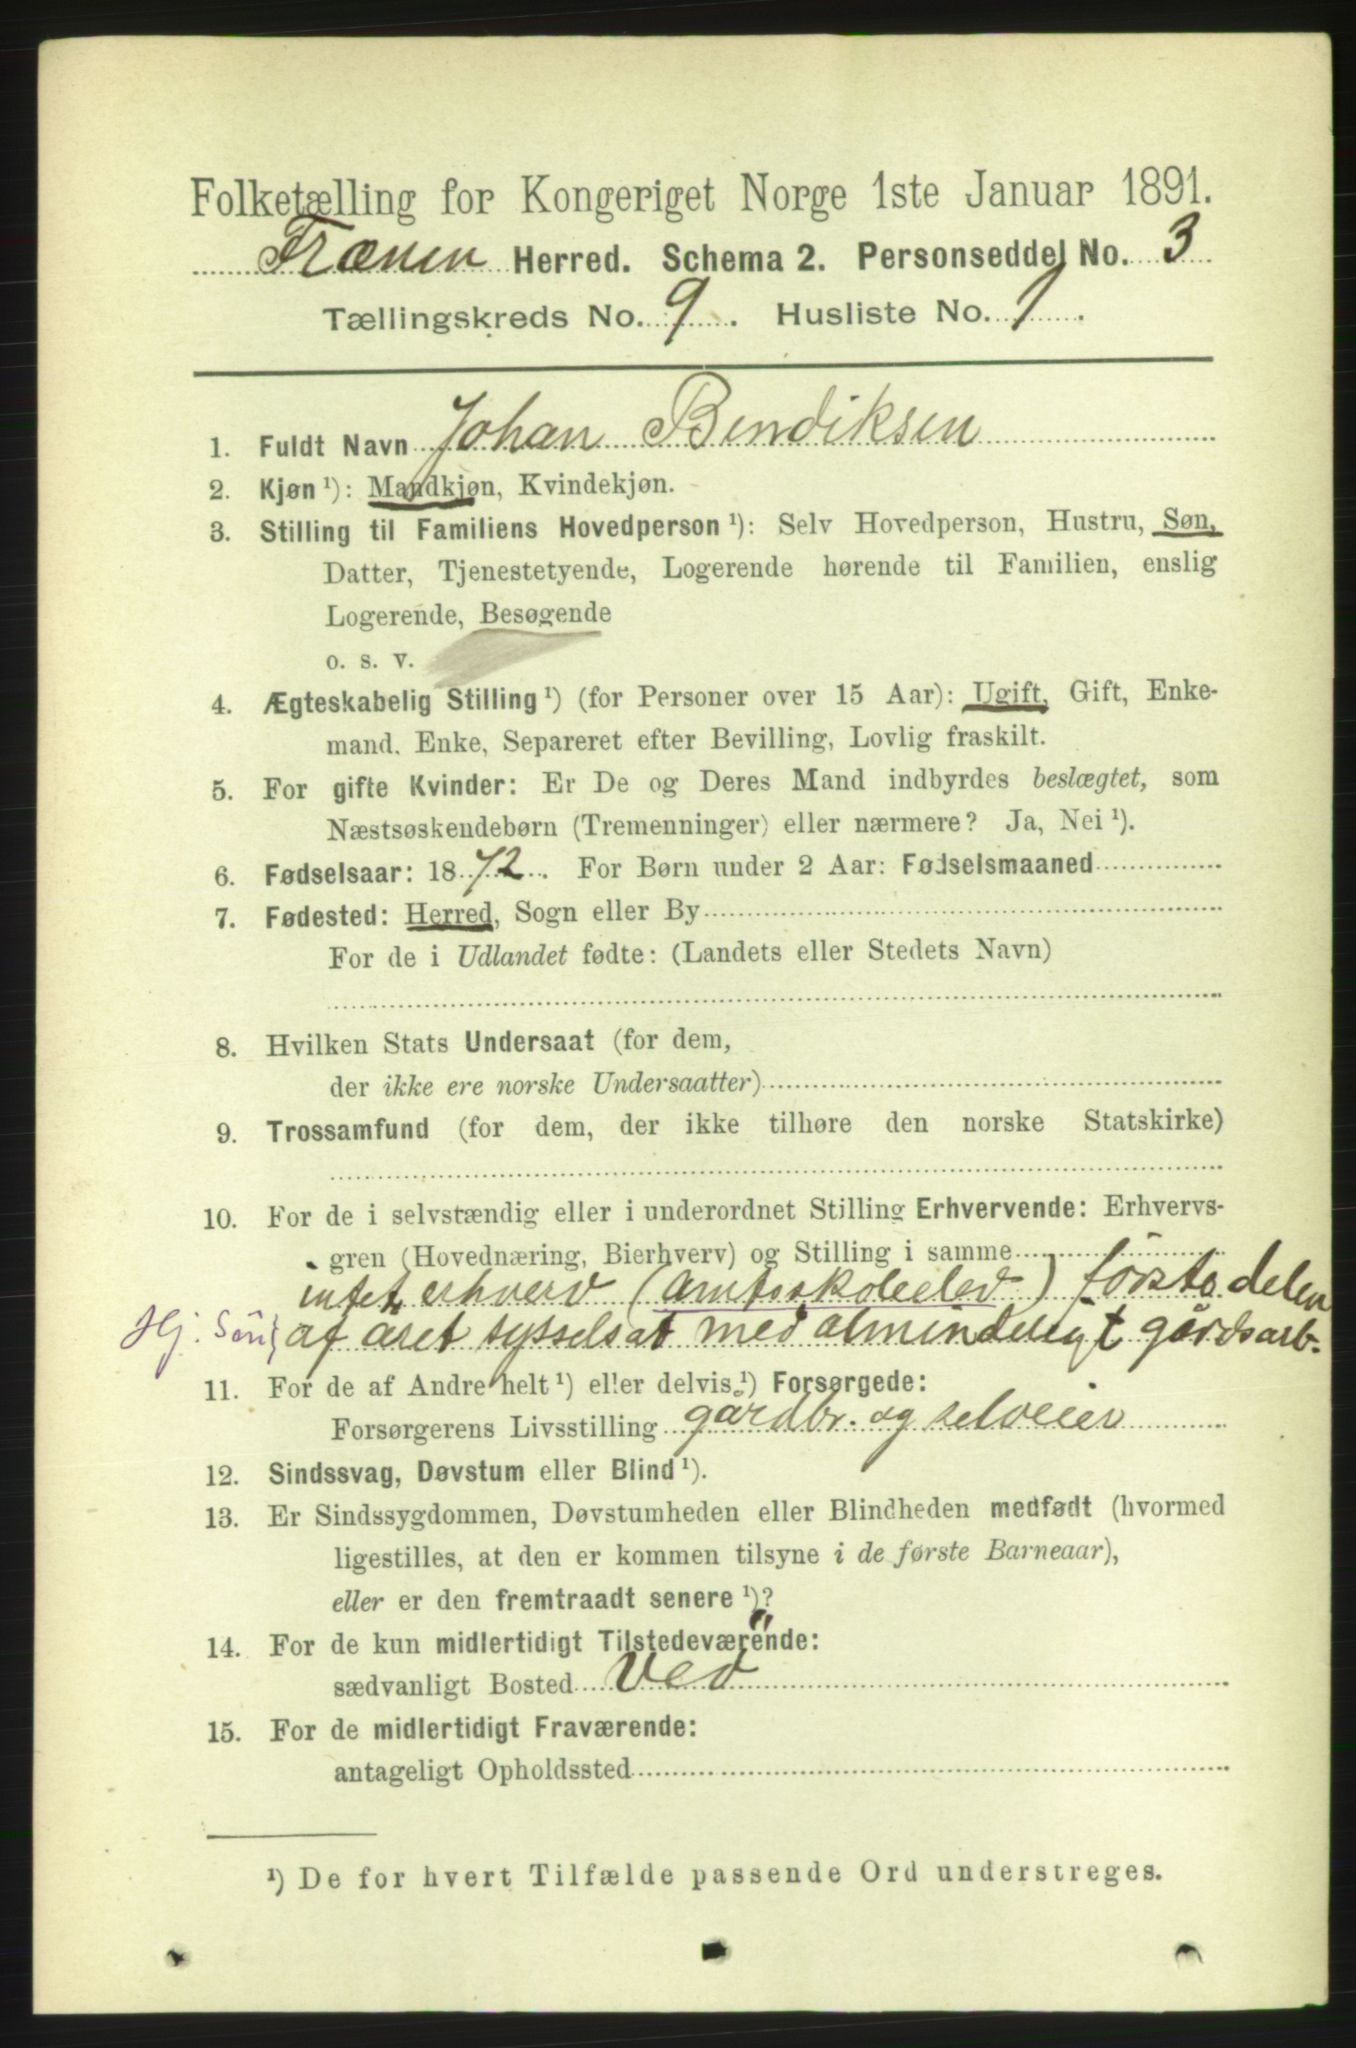 Folketælling for Kongeriget Norge 1ste Januar 1891.
Frænen Herred. Schema 2. Personseddel No. 3
Tællingskreds No. 9. Husliste No. 1.
1. Fuldt Navn Johan Bendiksen
2. Kjøn ¹): Mandkjøn, Kvindekjøn.
3. Stilling til Familiens Hovedperson ¹): Selv Hovedperson, Hustru, Søn,
Datter, Tjenestetyende, Logerende hørende til Familien, enslig
Logerende, Besøgende
o. s. v.
4. Ægteskabelig Stilling ¹) (for Personer over 15 Aar): Ugift, Gift, Enke-
mand, Enke, Separeret efter Bevilling, Lovlig fraskilt.
5. For gifte Kvinder: Er De og Deres Mand indbyrdes beslægtet, som
Næstsøskendebørn (Tremenninger) eller nærmere? Ja, Nei ¹).
6. Fødselsaar: 1872. For Børn under 2 Aar: Fødselsmaaned
7. Fødested: Herred, Sogn eller By
For de i Udlandet fødte: (Landets eller Stedets Navn)
8. Hvilken Stats Undersaat (for dem,
der ikke ere norske Undersaatter)
9. Trossamfund (for dem, der ikke tilhøre den norske Statskirke)
10. For de i selvstændig eller i underordnet Stilling Erhvervende: Erhvervs-
gren (Hovednæring, Bierhverv) og Stilling i samme
intet erhverv (amtsskoleelev) første delen
Hj. Søn af året sysselsat med almindeligt gårdsarb.
11. For de af Andre helt ¹) eller delvis ¹) Forsørgede:
Forsørgerens Livsstilling gårdbr. og selveier
12. Sindssvag, Døvstum eller Blind ¹).
13. Er Sindssygdommen, Døvstumheden eller Blindheden medfødt (hvormed
ligestilles, at den er kommen tilsyne i de første Barneaar),
eller er den fremtraadt senere ¹)?
14. For de kun midlertidigt Tilstedeværende:
sædvanligt Bosted
15. For de midlertidigt Fraværende:
antageligt Opholdssted
¹) De for hvert Tilfælde passende Ord understreges.